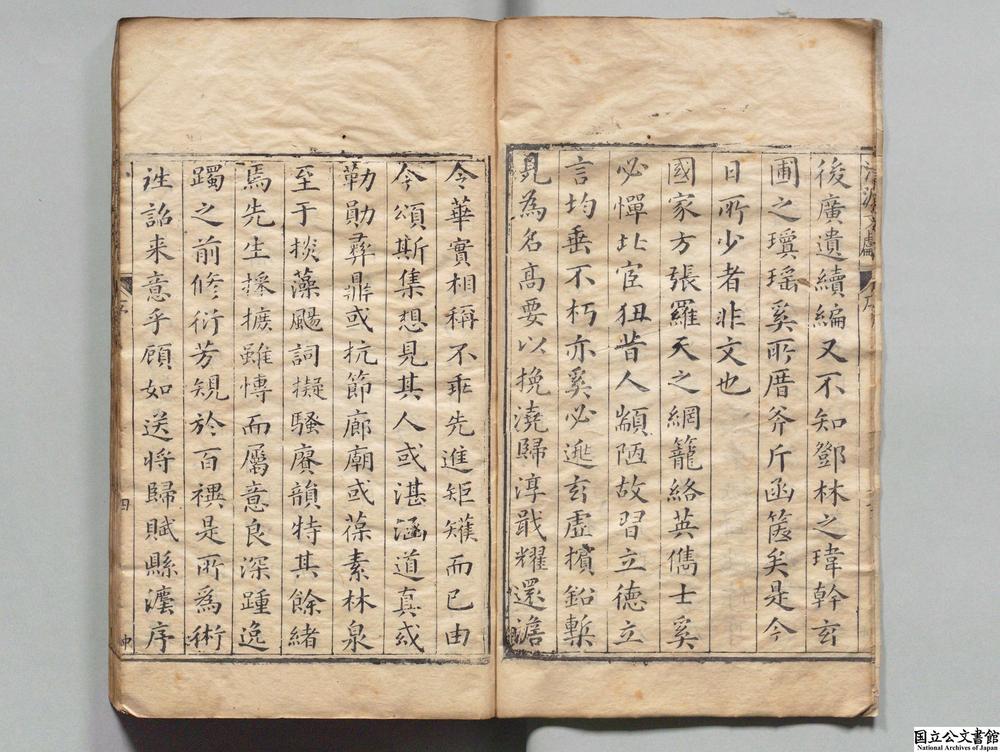 後廣遺續編又不知鄧林之瑋幹玄
圃之瓊瑤奚所厝斧斤函篋矣是今
日所少者非文也
國家方張羅天之網籠絡英儁士奚
必憚北宦狃昔人顓陋故習立德立
言均垂不朽亦奚必逃玄虛擯鉛槧
見為名高要以挽澆歸淳戢耀還澹
令華實相稱不乖先進矩矱而已由
今頌斯集想見其人或湛涵道真或
勒勛彞鼎或抗節廊廟或葆素林泉
至于掞藻颺詞擬騷賡韻特其餘緒
焉先生摭雖博而屬意良深踵逸
躅之前修衍芳規於百禩是所爲術
詮詔来意乎顧如送將歸賦縣瀍序
四
国立公文書館
National Archives of Japan